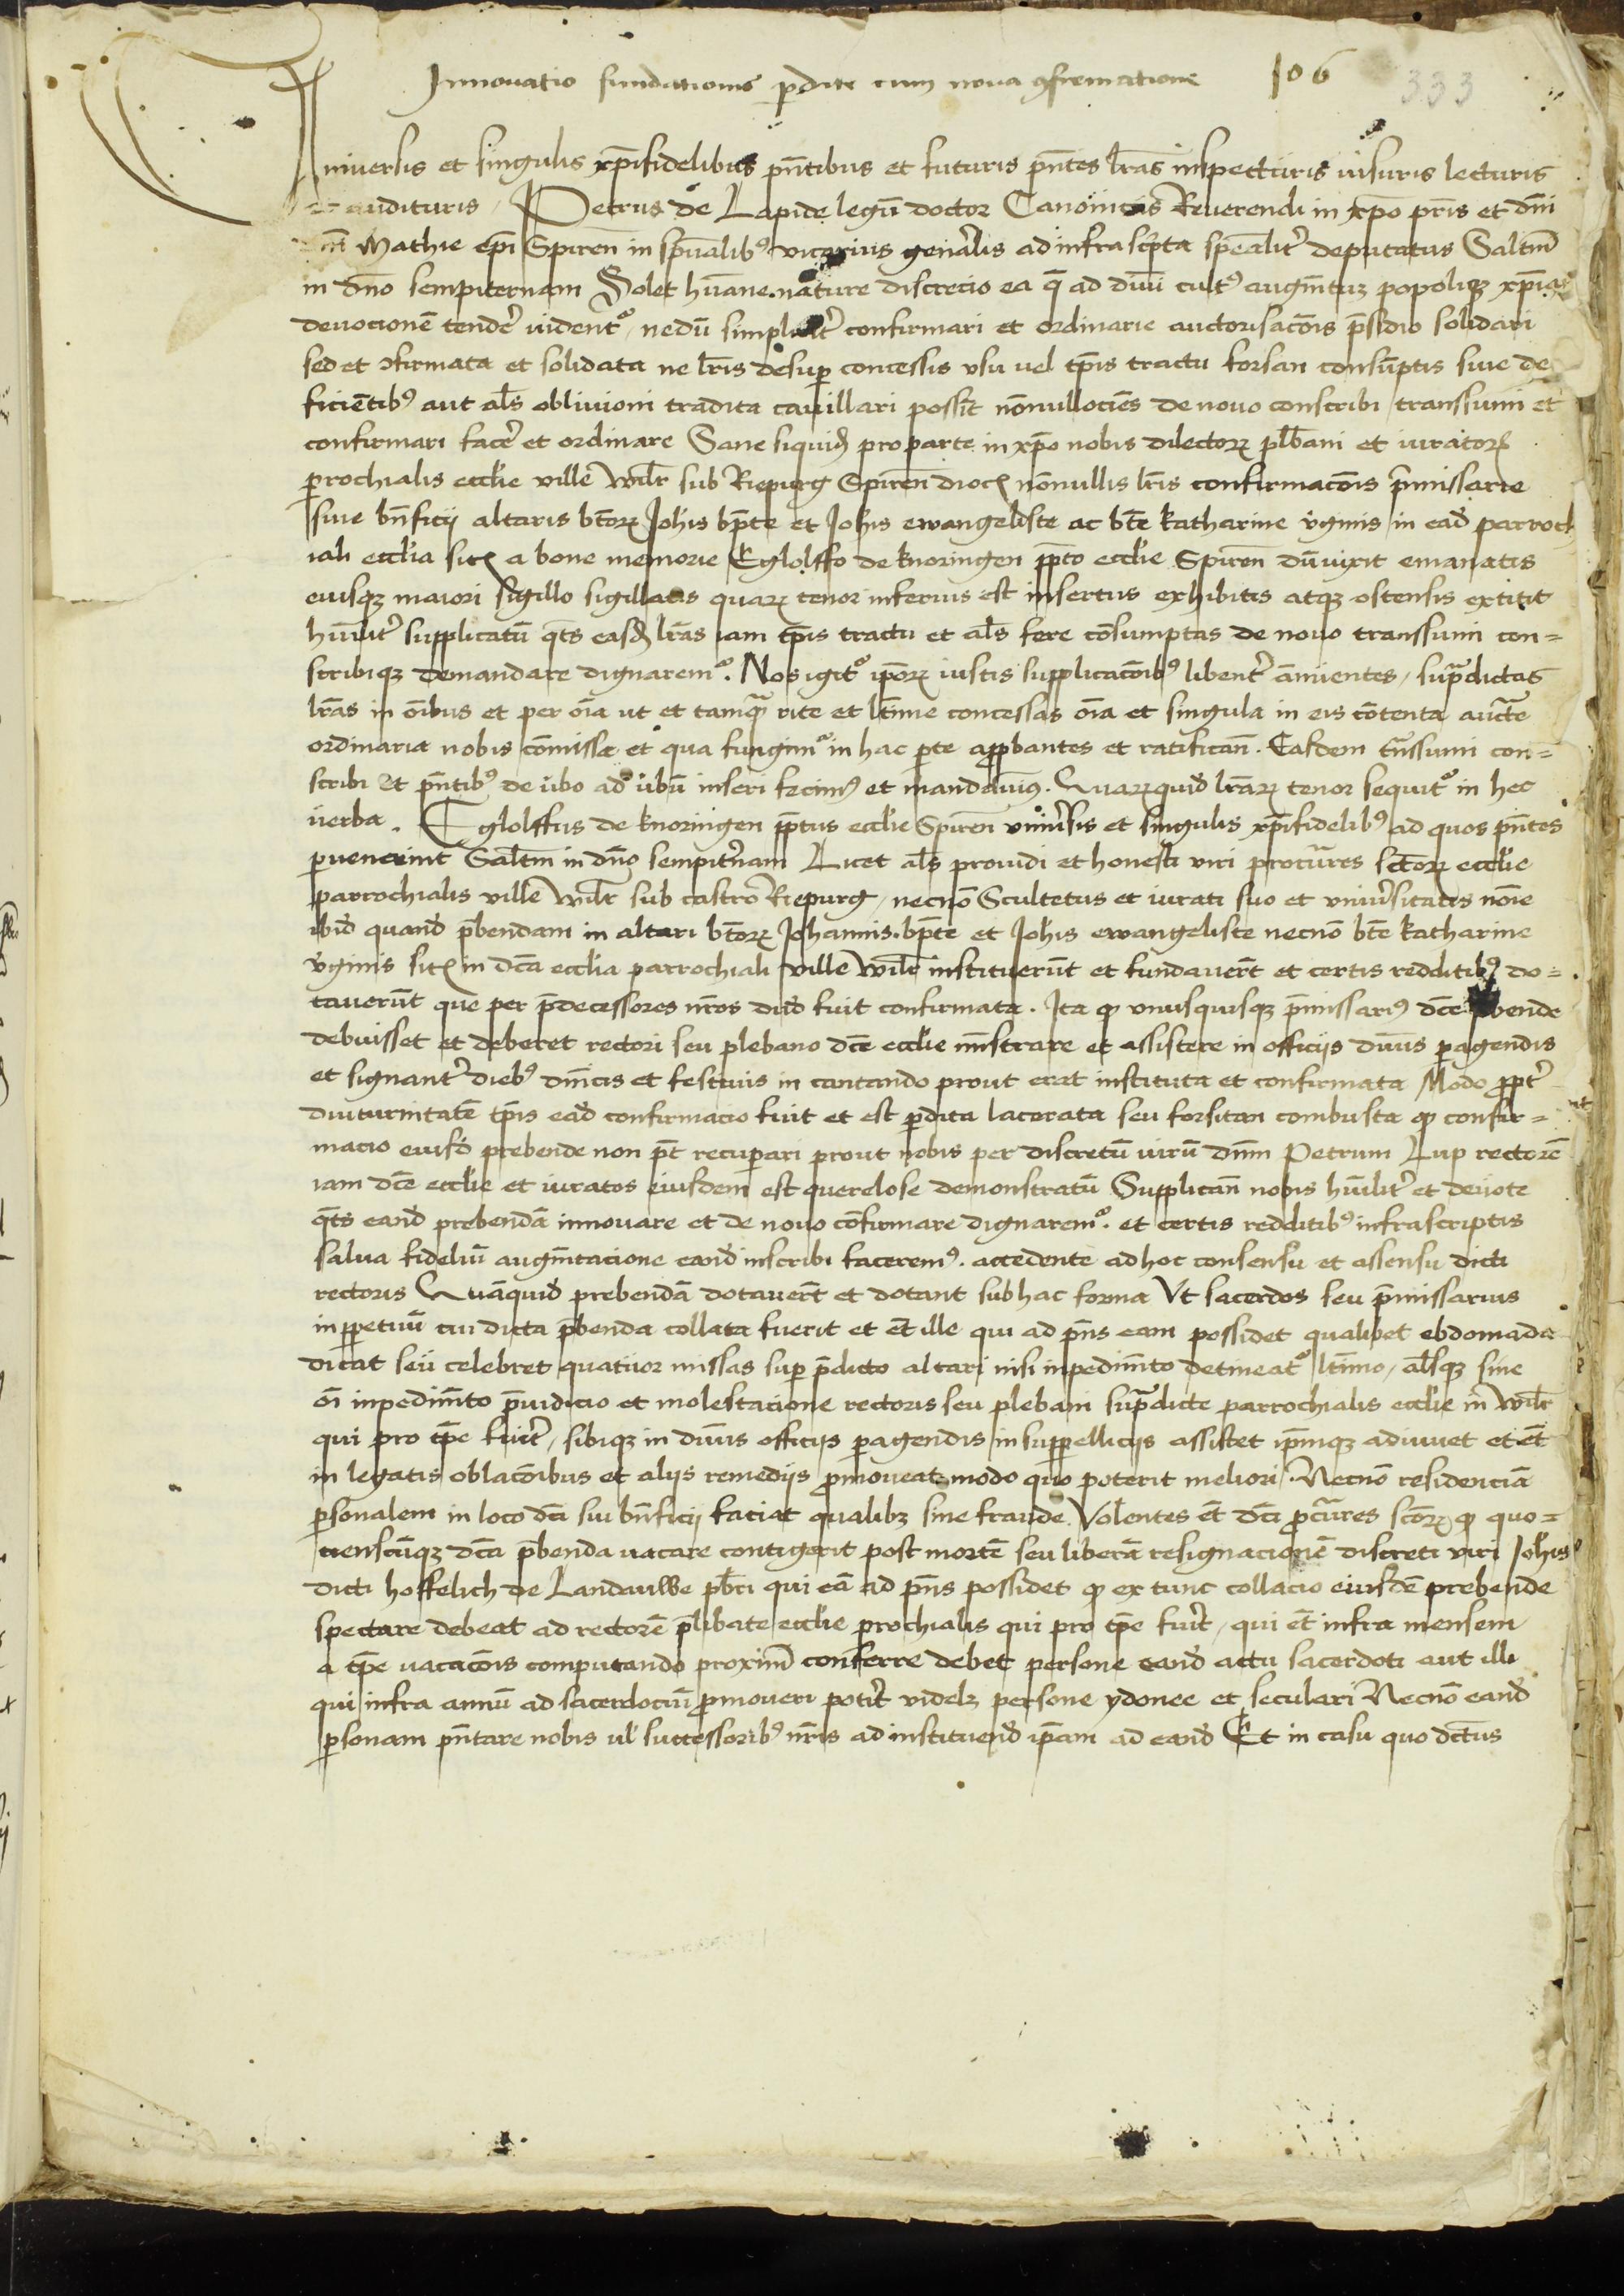 Innouatio fundationis p̄dicte cum noua ꝯfirmatione 106 333
Vniuersis et singulis xp̄ifidelibus pn̄tibus et futuris pn̄tes lr̄as inspecturis uisuris lecturis
et audituris, Petrus de Lapide legū doctor Canonicus Reuerendi in xp̄o pr̄is et dn̄i
dn̄i Mathie ep̄i Spiren̄ in sp̄ualibꝰ vicarius gen̄alis ad infrasc̄pta sp̄ealit̄ deputatus Saltm̄
in dn̄o sempiternam Solet hūane nature discrecio ea q̄ ad diui᷑ cultꝰ augm̄tuꝫ popoliqꝫ xp̄iani
deuocionē tender̄ uident᷑, nedū simplicit̄ confirmari et ordinarie auctorisacōis p̄sidio solidari
sed et ꝯfirmata et solidata ne lr̄is desuꝑ concessis vsu vel tp̄is tractu forsan consūptis siue de
ficiētibꝰ aut al̄s obliuioni tradita cauillari possit nōnullociēs de nouo conscribi transsumi et
confirmari facer̄ et ordinare Sane siquid᷑ pro parte in xp̄o nobis dilectoꝝ pl̄bani et iuratoꝝ
ꝑrochialis eccl̄ie ville wil̄r sub Riepurg Spiren̄ dioc᷑ nōnullis lr̄is confirmacōis p̄missarie
siue bn̄ficij altaris bt̄oꝝ Joh̄is bp̄te et Joh̄is ewangeliste ac bt̄e katharine v̄ginis in ead̄ parroch
iali eccl̄ia sit᷑ a bone memorie Eglolffo de knoringen p̄pto eccl̄ie Spiren̄ dū vixit emanatis
eiusqꝫ maiori sigillo sigillatis quaꝝ tenor inferius est insertus exhibitis atqꝫ ostensis extitit
hūilit̄ supplicatū qt̄s easd᷑ lr̄as iam tp̄is tractu et al̄s fere cōsumptas de nouo transsumi con=
scribiqꝫ demandare dignarem᷑. Nos igit᷑ ip̄oꝝ iustis supplicacōibꝰ libent̄ ānuentes, supradictas
lr̄as in ōibus et per oīa ut et tamqͣ rite et lt̄ime concessas oīa et singula in eis cōtenta auctē
ordinaria nobis cōmissa et qua fungim᷑ in hac ꝑte approbantes et ratifican̄. Easdem tn̄ssumi con=
scribi et pn̄tibꝰ de v̄bo ad v̄bū inseri fecimꝰ et mandauimꝰ. Quaꝝquid̄ lr̄aꝝ tenor sequit᷑ in hec
uerba. Eglolffus de knoringen p̄ptus eccl̄ie Spiren̄ vniūsis et singulis xp̄ifidelibꝰ ad quos pn̄tes
ꝑuenerint Saltm̄ in dn̄o sempit̄nam Licet al̄s prouidi et honesti viri procūres sct̄oꝝ eccl̄ie
parrochialis ville wil̄r sub castro Riepurg, necnō Scultetus et iurati suo et vniūsitatis nōie
ibid̄ quand̄ p̄bendam in altari bt̄oꝝ Johannis bp̄te et Joh̄is ewangeliste necnō bt̄e katharine
v̄ginis sit᷑ in dc̄a eccl̄ia parrochiali ville wil̄r instituerūt et fundauerūt et certis redditibꝰ do=
tauerūt que per p̄decessores nr̄os dud̄ fuit confirmata. Ita ꝙ vnusquisqꝫ p̄missariꝰ dc̄e p̄bende
debuisset et deberet rectori seu plebano dc̄e eccl̄ie mīstrare et assistere in officijs diuīs ꝑagendis
et signant̄ diebꝰ dn̄icis et festiuis in cantando prout erat instituta et confirmata Modo ꝓpt̄
diuturnitatē tp̄is ead̄ confirmacio fuit et est ꝑdita lacerata seu forsitan combusta ꝙ confir=
macio eiusd̄ prebende non pt̄ recuꝑari prout nobis per discretū uirū dn̄m Petrum Lup rectorē
iam dc̄e eccl̄ie et iuratos eiusdem est querelose demonstratū Supplican̄ nobis hūilit̄ et deuote
qt̄s eand̄ prebendā innouare et de nouo cōfirmare dignarem᷑. et certis redditibꝰ infrascriptis
salua fideliū augm̄tacione eand̄ inscribi faceremꝰ. accedente ad hoc consensu et assensu dicti
rectoris Quāquid̄ prebendā dotauerūt et dotant sub hac forma Vt sacerdos seu p̄missarius
inꝑpetuū cui dicta p̄benda collata fuerit et et̄ ille qui ad pn̄s eam possidet qualibet ebdomada
dicat seu celebret quatuor missas suꝑ p̄dicto altari nisi inpedim̄to detineat᷑ lt̄imo, al̄sqꝫ sine
oī inpedim̄to p̄iudicio et molestacione rectoris seu plebani supradicte parrochialis eccl̄ie in wil̄r
qui pro tp̄e fuit̄, sibiqꝫ in diuīs officijs ꝑagendis in suppellicijs assistet ip̄mqꝫ adiuuet et et̄
in legatis oblacōibus et alijs remedijs ꝓmoueat modo quo poterit meliori. Necnō residenciā
ꝑsonalem in loco dc̄i sui bn̄ficij faciat qualibꝫ sine fraude Volentes et̄ dc̄i ꝓcūres sct̄oꝝ ꝙ quo=
tienscūqꝫ dc̄a p̄benda vacare contigerit post mortē seu liberā resignacionē discreti viri Joh̄is
dicti hoffelich de Landauwe pb̄ri qui eā ad pn̄s possidet ꝙ ex tunc collacio eiusdē prebende
spectare debeat ad rectorē p̄libate eccl̄ie ꝑrochialis qui pro tp̄e fuit̄, qui et̄ infra mensem
a tp̄e vacacōis computando proxim̄ conferre debet persone eand̄ actu sacerdoti aut illi
qui infra annū ad sacerdociū ꝓmoueri potit̄ videlꝫ persone ydonee et seculari Necnō eand̄
ꝑsonam pn̄tare nobis vl̄ successoribꝰ nr̄is ad instituend̄ ip̄am ad eand̄ Et in casu quo dct̄us